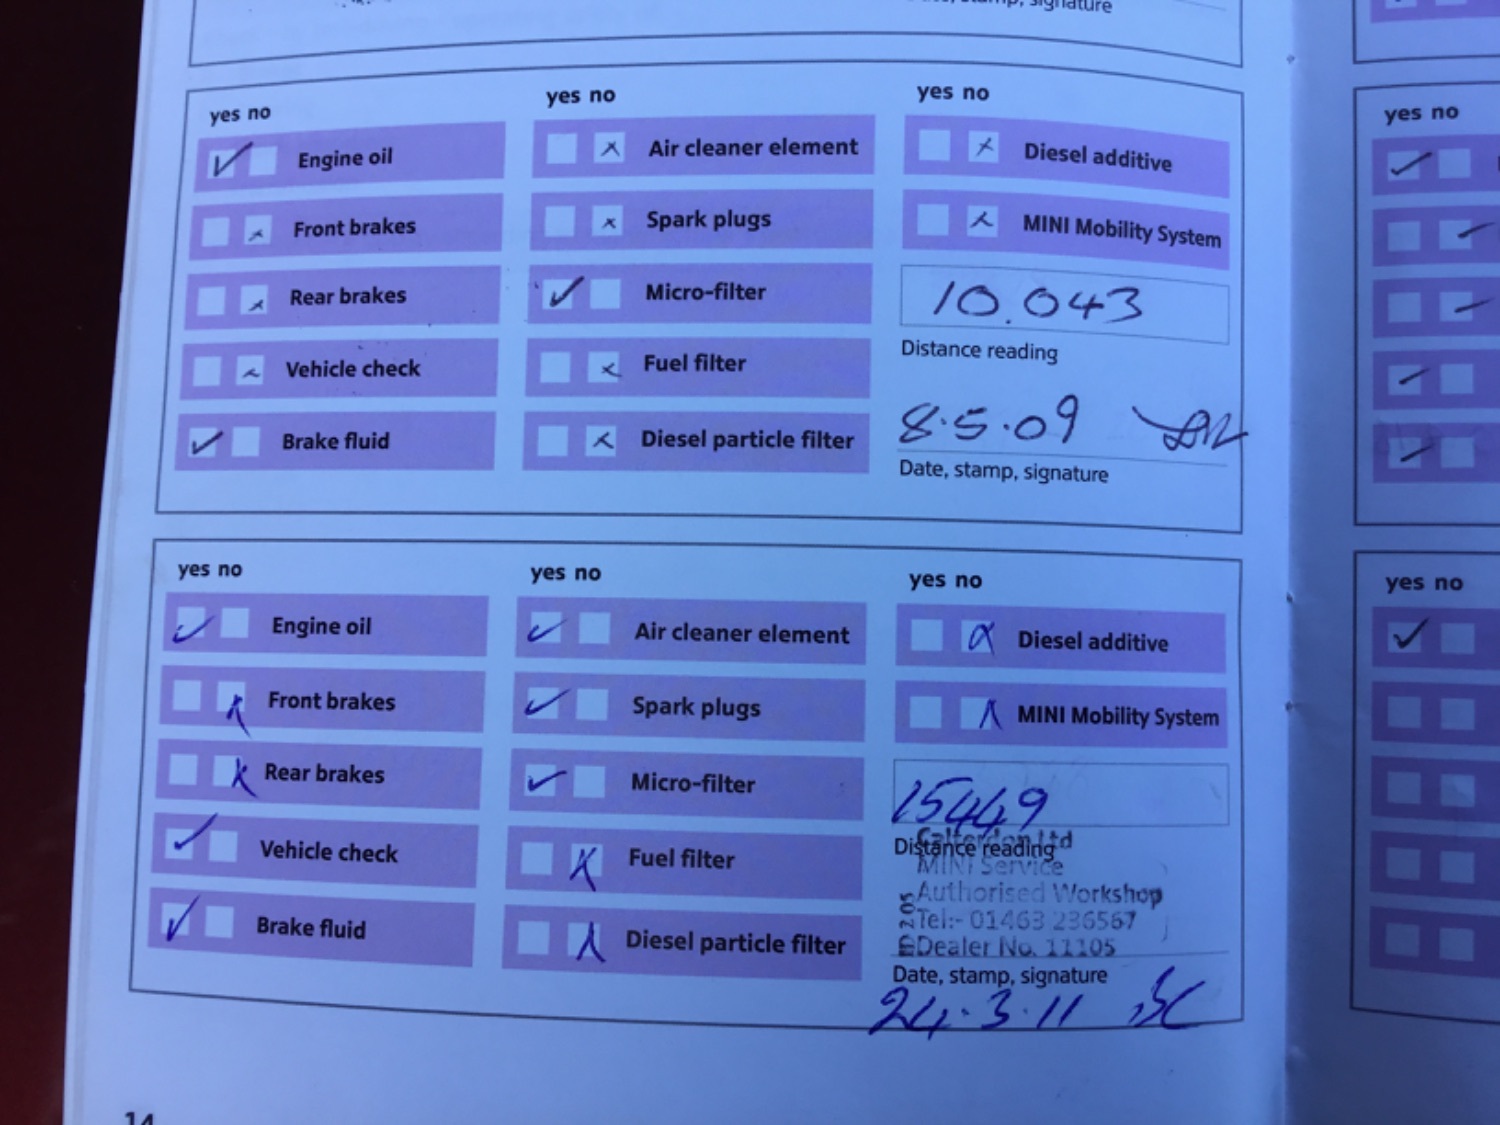 signature
yes no
Engine oil
Front brakes
Rear brakes
Vehicle check
Brake fluid
yes no
Air cleaner element
Spark plugs
Micro-filter
Fuel filter
Diesel particle filter
yes no
Diesel additive
MINI Mobility System
10.043
Distance reading
8.5.09
Date, stamp, signature
yes no
Engine oil
Front brakes
Rear brakes
Vehicle check
Brake fluid
yes no
Air cleaner element
Spark plugs
Micro-filter
Fuel filter
Diesel particle filter
yes no
Diesel additive
MINI Mobility System
15449
Distance reading
Ltd
MINI Service
Authorised Workshop
Tel:- 01463 236567
Dealer No. 11105
Date, stamp, signature
24.3.11
yes no
yes no
14